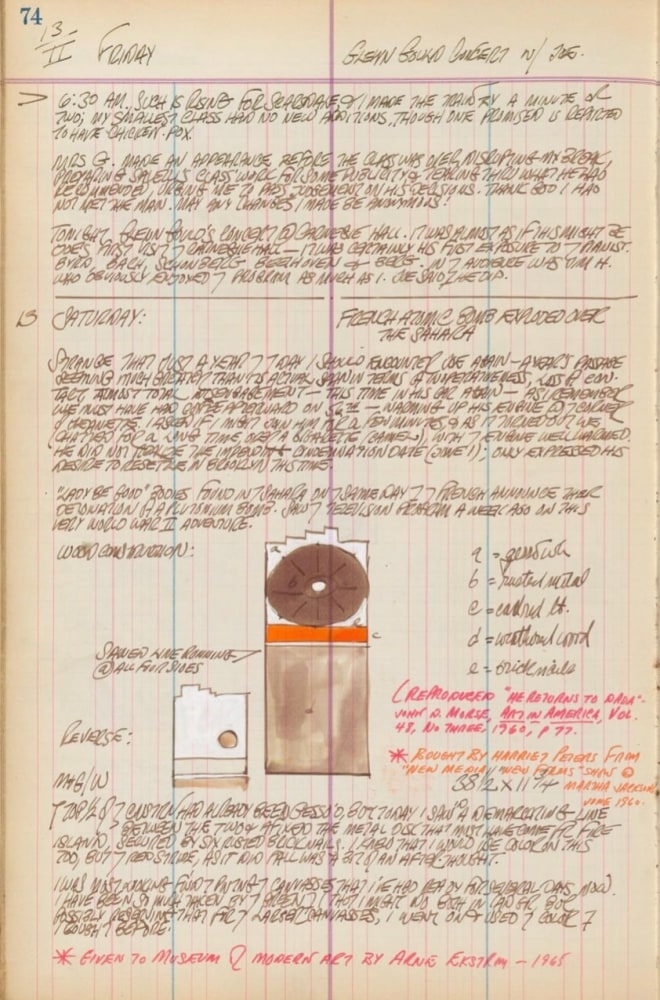 74
13 II FRIDAY GLENN GOULD CONCERT W/ JOE.
6:30 AM. SUCH IS RISING FOR SCARSDALE & I MADE THE TRAIN BY A MINUTE OR
TWO; MY SMALLEST CLASS HAD NO NEW ADDITIONS, THOUGH ONE PROMISED IS REPORTED
TO HAVE CHICKEN-POX.
MRS G. MADE AN APPEARANCE BEFORE THE CLASS WAS OVER, DISRUPTING MY BREAK,
PREPARING CLASS WORK FOR SOME PUBLICITY & TEARING THRU WHAT HE HAD
RECOMMENDED, URGING ME TO PASS JUDGEMENT ON HIS DECISIONS. THANK GOD I HAD
NOT MET THE MAN. MAY ANY CHANGES I MADE BE ANONYMOUS!
TONIGHT, GLENN GOULD'S CONCERT @ CARNEGIE HALL. IT WAS ALMOST AS IF THIS MIGHT BE
JOE'S FIRST VISIT CARNEGIE HALL — IT WAS CERTAINLY HIS FIRST EXPOSURE TO 7 PIANIST.
BYRD, BACH, SCHONBERG, BEETHOVEN & BERG. IN 7 AUDIENCE WAS TIM H.
WHO OBVIOUSLY ENJOYED 7 PROGRAM AS MUCH AS I. JOE SAID HE DID.
13 SATURDAY: FRENCH ATOMIC BOMB EXPLODED OVER
THE SAHARA
STRANGE THAT JUST A YEAR 7 7 DAY I SHOULD ENCOUNTER JOE AGAIN — A YEAR'S PASSAGE
SEEMING MUCH GREATER THAN ITS ACTUAL SPAN IN TERMS OF LOSS OF CON-
TACT, ALMOST TOTAL — THIS TIME IN HIS CAR AGAIN — AS I REMEMBER
WE MUST HAVE HAD COFFEE AFTERWARD ON 56TH — WARMING UP HIS ENGINE @ 7 CORNER
I ASKED IF I MIGHT JOIN HIM FOR A FEW MINUTES & AS IT TURNED OUT WE
CHATTED FOR A LONG TIME, OVER A CIGARETTE (CAMEL), WITH 7 ENGINE WELL WARMED.
HE DID NOT REALIZE THE IMPENDING CONDEMNATION DATE (JUNE 1); ONLY EXPRESSED HIS
DESIRE TO RESETTLE IN BROOKLYN THIS TIME.
"LADY BE GOOD" BODIES FOUND IN 7 SAHARA ON 7 SAME DAY 7 7 FRENCH ANNOUNCE THEIR
DETONATION OF A PLUTONIUM BOMB. SAW 7 TELEVISION PROGRAM A WEEK AGO ON THIS
VERY WORLD WAR II ADVENTURE.
WOOD CONSTRUCTION:
a
b
e
c
a = gesso'd wh
b = rusted metal
c = cad red lt.
d = weathered wood
e = brick nails
SAWED LINE RUNNING
@ ALL FOUR SIDES
(REPRODUCED "HE RETURNS TO DADA"-
JOHN D. MORSE, ART IN AMERICA, VOL.
48, NO THREE, 1960, P 77.
REVERSE:
* BOUGHT BY HARRIET PETERS FROM
"NEW MEDIA/NEW FORMS" SHOW @
MARTHA JACKSON
JUNE 1960.
38 1/2 X 11 3/4
7 TOP 1/2 OF 7 HAD ALREADY BEEN GESSO'D, BUT TODAY I SAW'D A DEMARCATING LINE
BETWEEN THE TWO & AFFIXED THE METAL DISC THAT MUST HAVE COME FR FIRE
ISLAND, SECURED BY SIX RUSTED BRICK NAILS. I KNEW THAT I WOULD USE COLOR ON THIS
TOO, BUT 7 RED STRIPE, AS IT DID FALL WAS A BIT OF AN AFTERTHOUGHT.
I WAS MOST 7 PAINTING 7 CANVASSES THAT I'VE HAD READY FOR SEVERAL DAYS, NOW.
I HAVE BEEN SO MUCH TAKEN BY 7 GREEN THAT I MIGHT DO BOTH IN CAD GR. BUT
POSSIBLY RESERVING THAT FOR 7 LARGER CANVASSES, I WENT ON & USED 7 COLOR 7
THOUGHT BEFORE.
* GIVEN TO MUSEUM OF MODERN ART BY ARNE EKSTROM — 1965